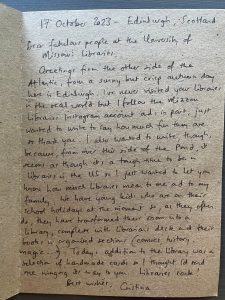 17 October 2023 - Edinburgh, Scotland
Dear fabulous people at the University of
Missouri Libraries.
Greetings from the other side of the
Atlantic, from a sunny but crisp autumn day
here in Edinburgh. I've never visited your libraries
in the real world but I follow the Mizzou
Libraries Instagram account and, in part, just
wanted to write to say how much fun them are
so thank you. I also wanted to write though
because, from over this side of the Pond, it
seems as though it's a tough time to be in
Libraries in the US so I just wanted to let you
know how much libraries mean to me and to my
family. We have young kids who are on their
school holidays at the moment and, as they often
do, they have transformed their room into a
library, complete with librarians' desk and their
books in organised sections (comics, history,
magic...). Today's addition to the library was a
selection of handmade cards so I thought I'd send
one winging its way to you. Libraries rock!
Best wishes,
Cristina